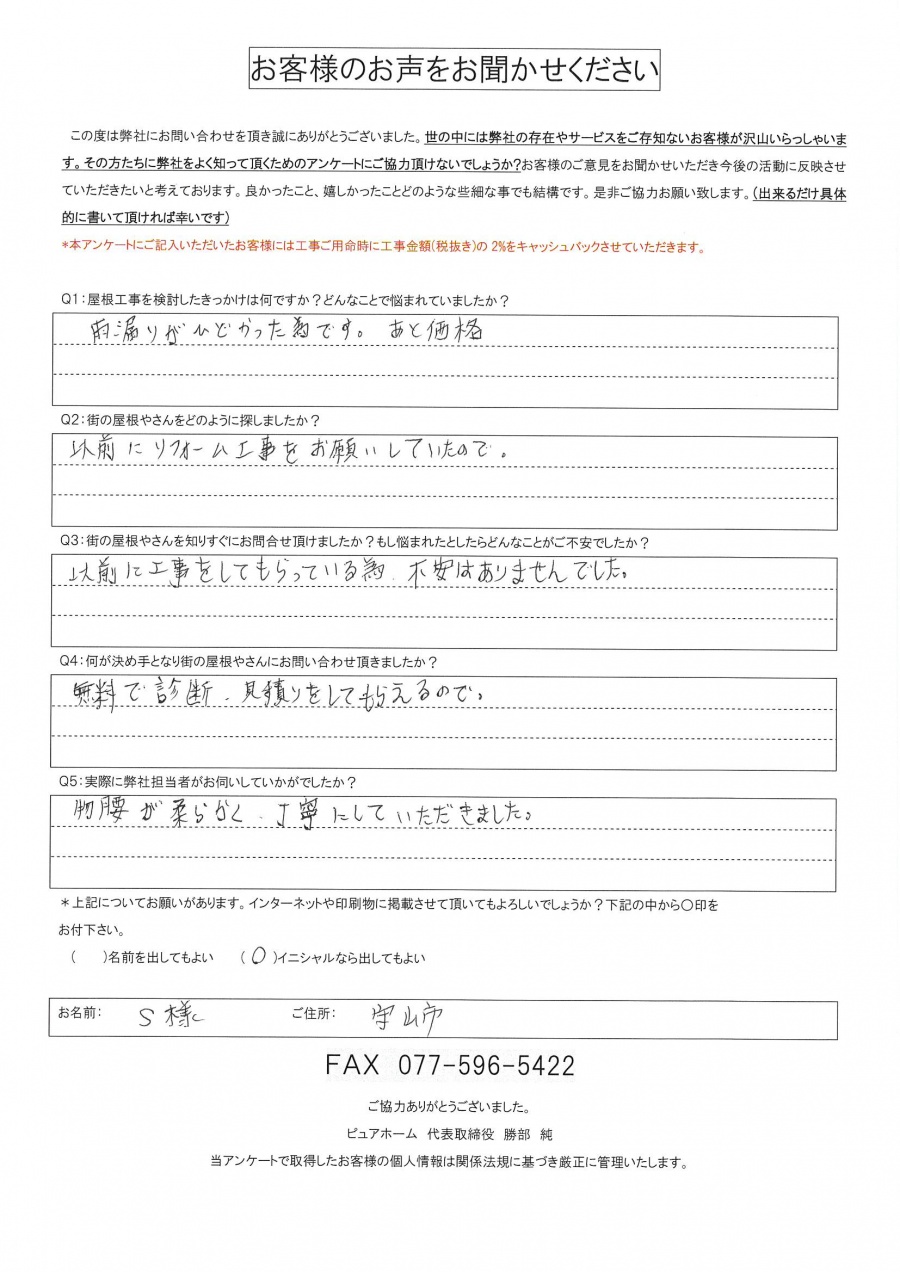 お客様のお声をお聞かせください
この度は弊社にお問い合わせを頂き誠にありがとうございました。世の中には弊社の存在やサービスをご存知ないお客様が沢山いらっしゃいま
す。その方たちに弊社をよく知って頂くためのアンケートにご協力頂けないでしょうか?お客様のご意見をお聞かせいただき今後の活動に反映させ
ていただきたいと考えております。良かったこと、嬉しかったことどのような些細な事でも結構です。是非ご協力お願い致します。(出来るだけ具体
的に書いて頂ければ幸いです)
*本アンケートにご記入いただいたお客様には工事ご用命時に工事金額(税抜き)の 2%をキャッシュバックさせていただきます。
Q1:屋根工事を検討したきっかけは何ですか?どんなことで悩まれていましたか?
雨漏りがひどかった為です。あと価格
Q2:街の屋根やさんをどのように探しましたか?
以前にリフォーム工事をお願いしていたので。
Q3:街の屋根やさんを知りすぐにお問合せ頂けましたか?もし悩まれたとしたらどんなことがご不安でしたか?
以前に工事をしてもらっている為、不安はありませんでした。
Q4:何が決め手となり街の屋根やさんにお問い合わせ頂きましたか?
無料で診断、見積りをしてもらえるので。
Q5:実際に弊社担当者がお伺いしていかがでしたか?
物腰が柔らかく、丁寧にしていただきました。
*上記についてお願いがあります。インターネットや印刷物に掲載させて頂いてもよろしいでしょうか?下記の中から〇印を
お付下さい。
( )名前を出してもよい (〇)イニシャルなら出してもよい
お名前: S様 ご住所: 守山市
FAX 077-596-5422
ご協力ありがとうございました。
ピュアホーム 代表取締役 勝部 純
当アンケートで取得したお客様の個人情報は関係法規に基づき厳正に管理いたします。